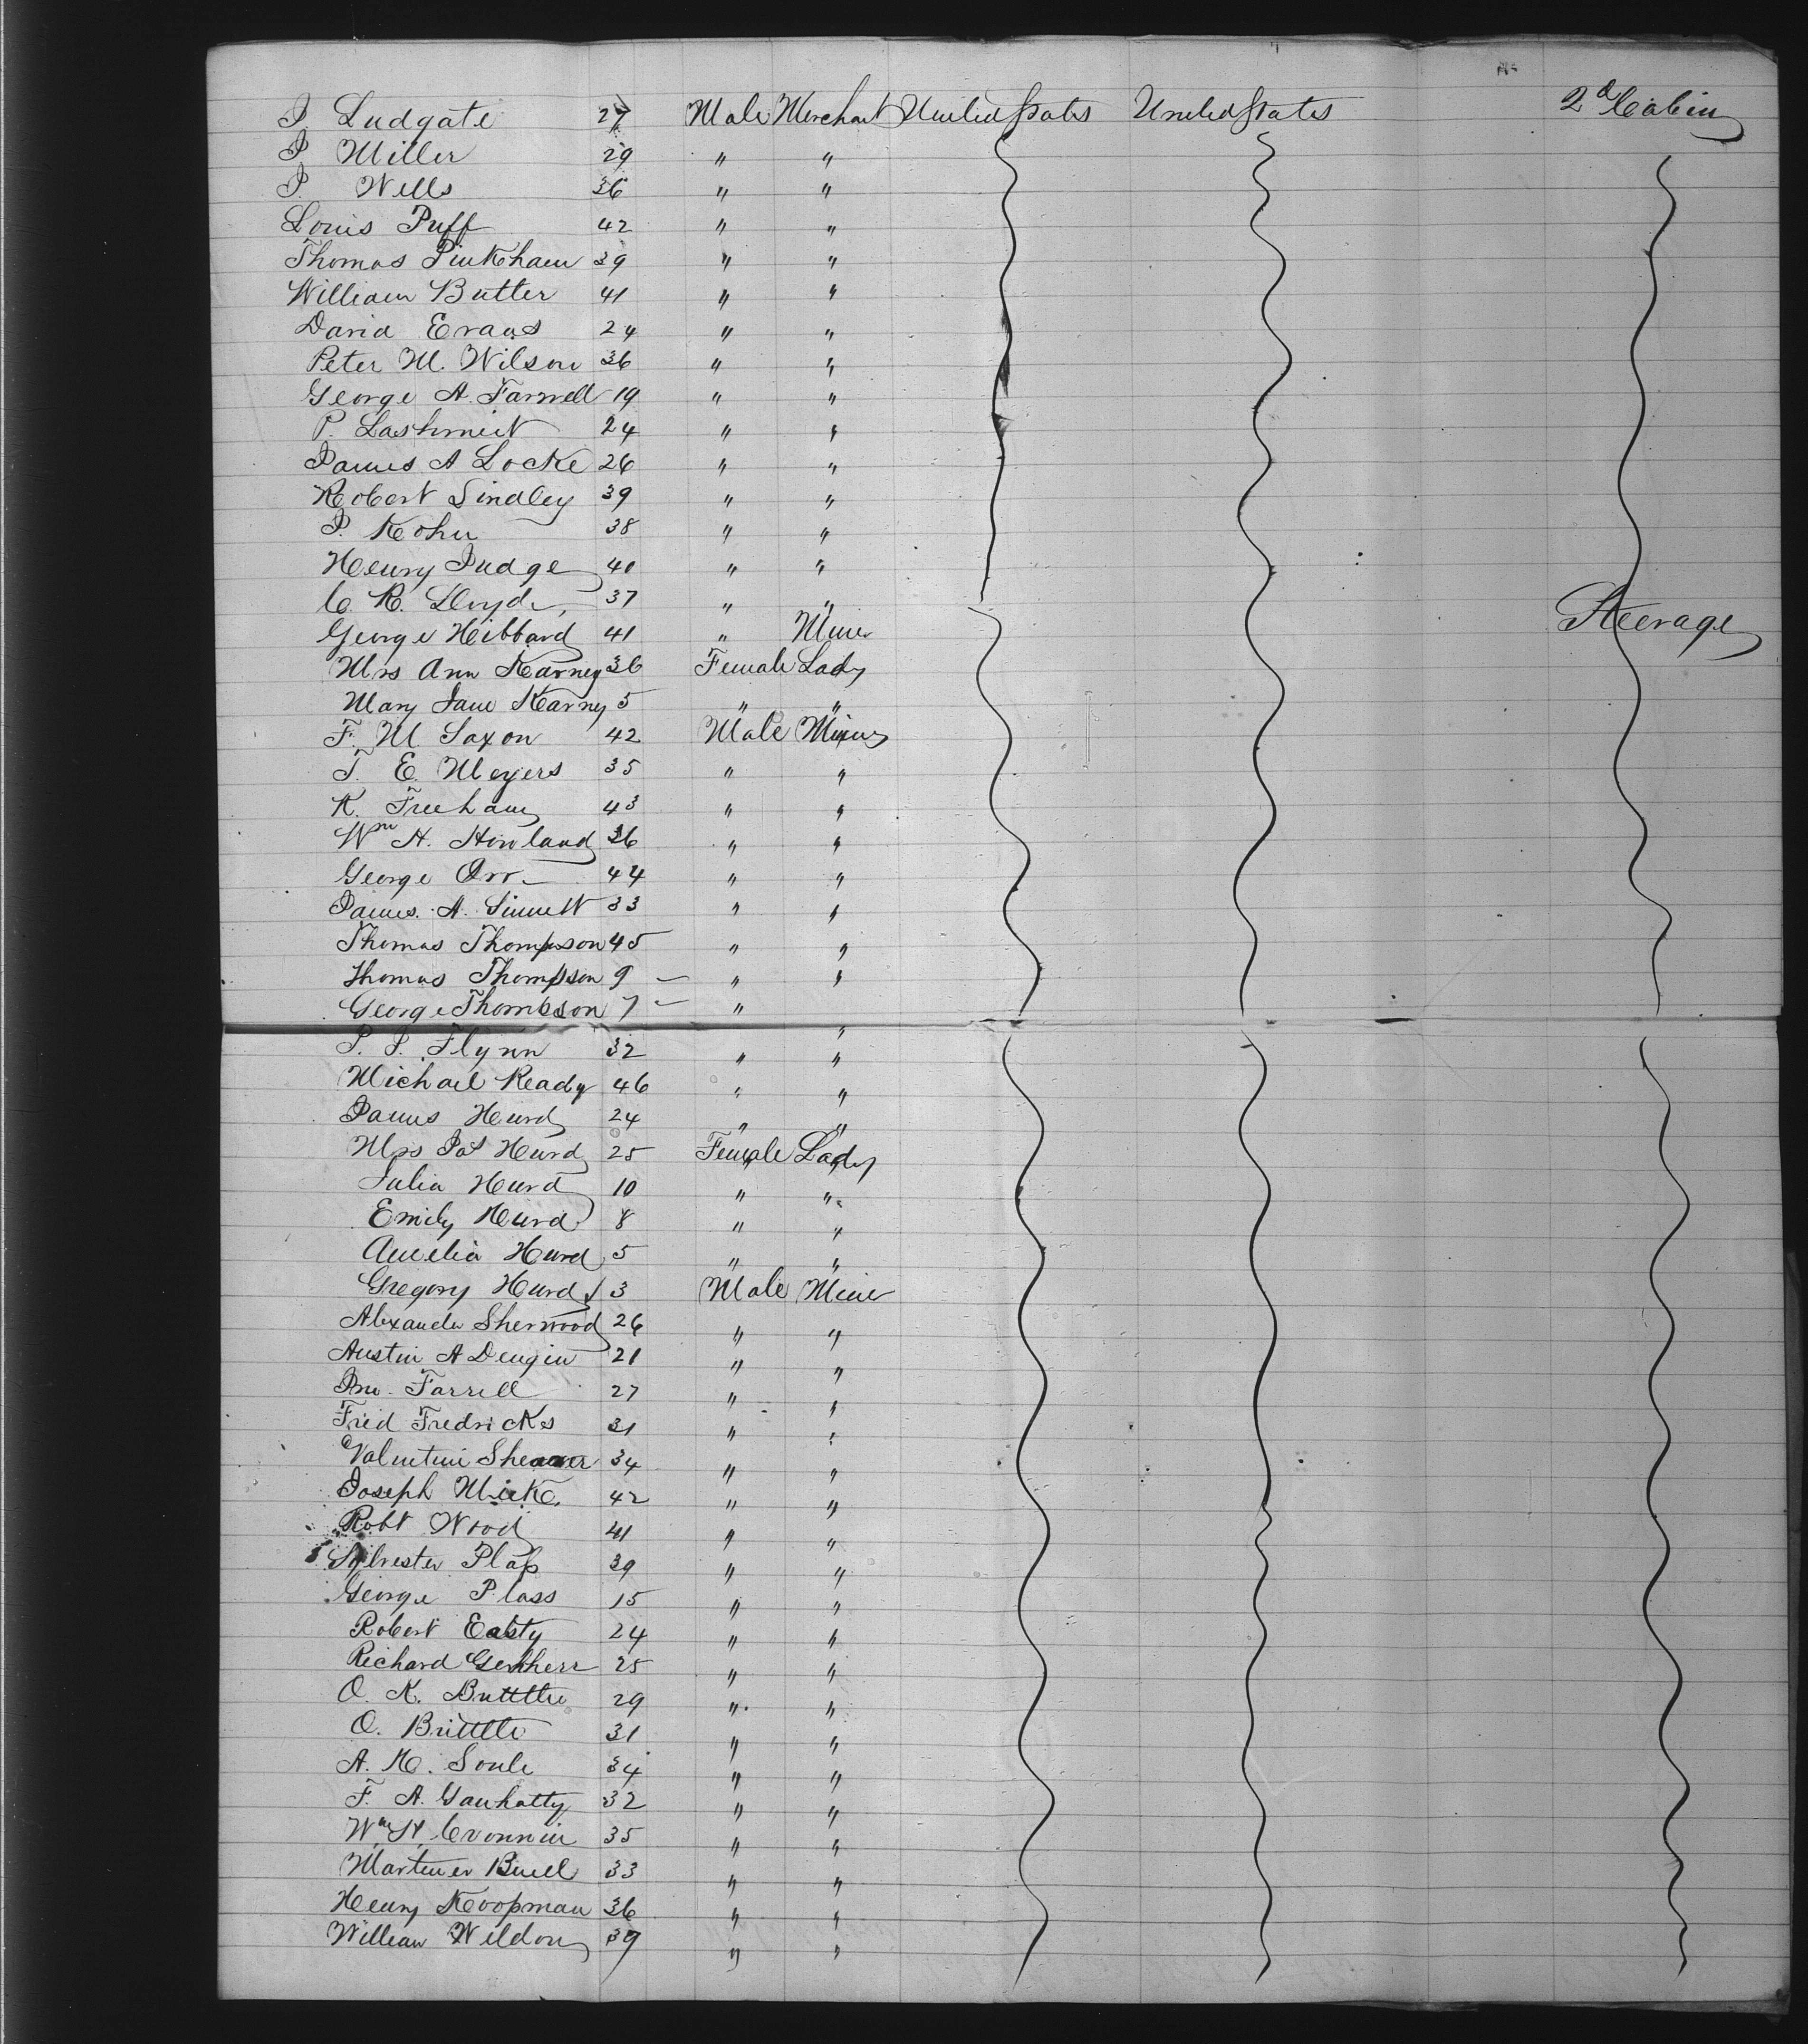 J. Ludgate 27 Male Merchant United States United States 2d Cabin
J. Miller 29 " "
J. Wells 36 " "
Louis Puff 42 " "
Thomas Pinkham 39 " "
William Butler 41 " "
David Evans 24 " "
Peter M. Wilson 36 " "
George A. Farwell 19 " "
P. 24 " "
James A Locke 26 " "
Robert Lindley 39 " "
J. Kohn 38 " "
Henry Judge 40 " "
C. R. Lloyd 37 " " Steerage
George Hibbard 41 " Miner
Mrs Ann Kearney 36 Female Lady
Mary Jane Kearny 5 " "
F. M. Saxon 42 Male Miner
T. E. Meyers 35 " "
K. 43 " "
Wm H. Howland 36 " "
George Orr 44 " "
James A. 33 " "
Thomas Thompson 45 " "
Thomas Thompson 9 — " "
George Thompson 7 — " "
J. J. Flynn 32 " "
Michael Ready 46 " "
James Hurd 24 " "
Mrs Pat Hurd 25 Female Lady
Julia Hurd 10 " "
Emily Hurd 8 " "
Amelia Hurd 5 " "
Gregory Hurd 3 Male Miner
Alexander Sherwood 26 " "
Austin A 21 " "
Jno. Farrell 27 " "
Fred Fredricks 31 " "
Valentine 34 " "
Joseph 42 " "
Robt Wood 41 " "
Sylvester Plass 39 " "
George Plass 15 " "
Robert Easty 24 " "
Richard 25 " "
O. K. 29 " "
O. Brittle 31 " "
A. H. Soule 34 " "
F. A. 32 " "
Wm H. Cronnin 35 " "
Buell 33 " "
Henry Koopman 36 " "
William Wildon 39 " "